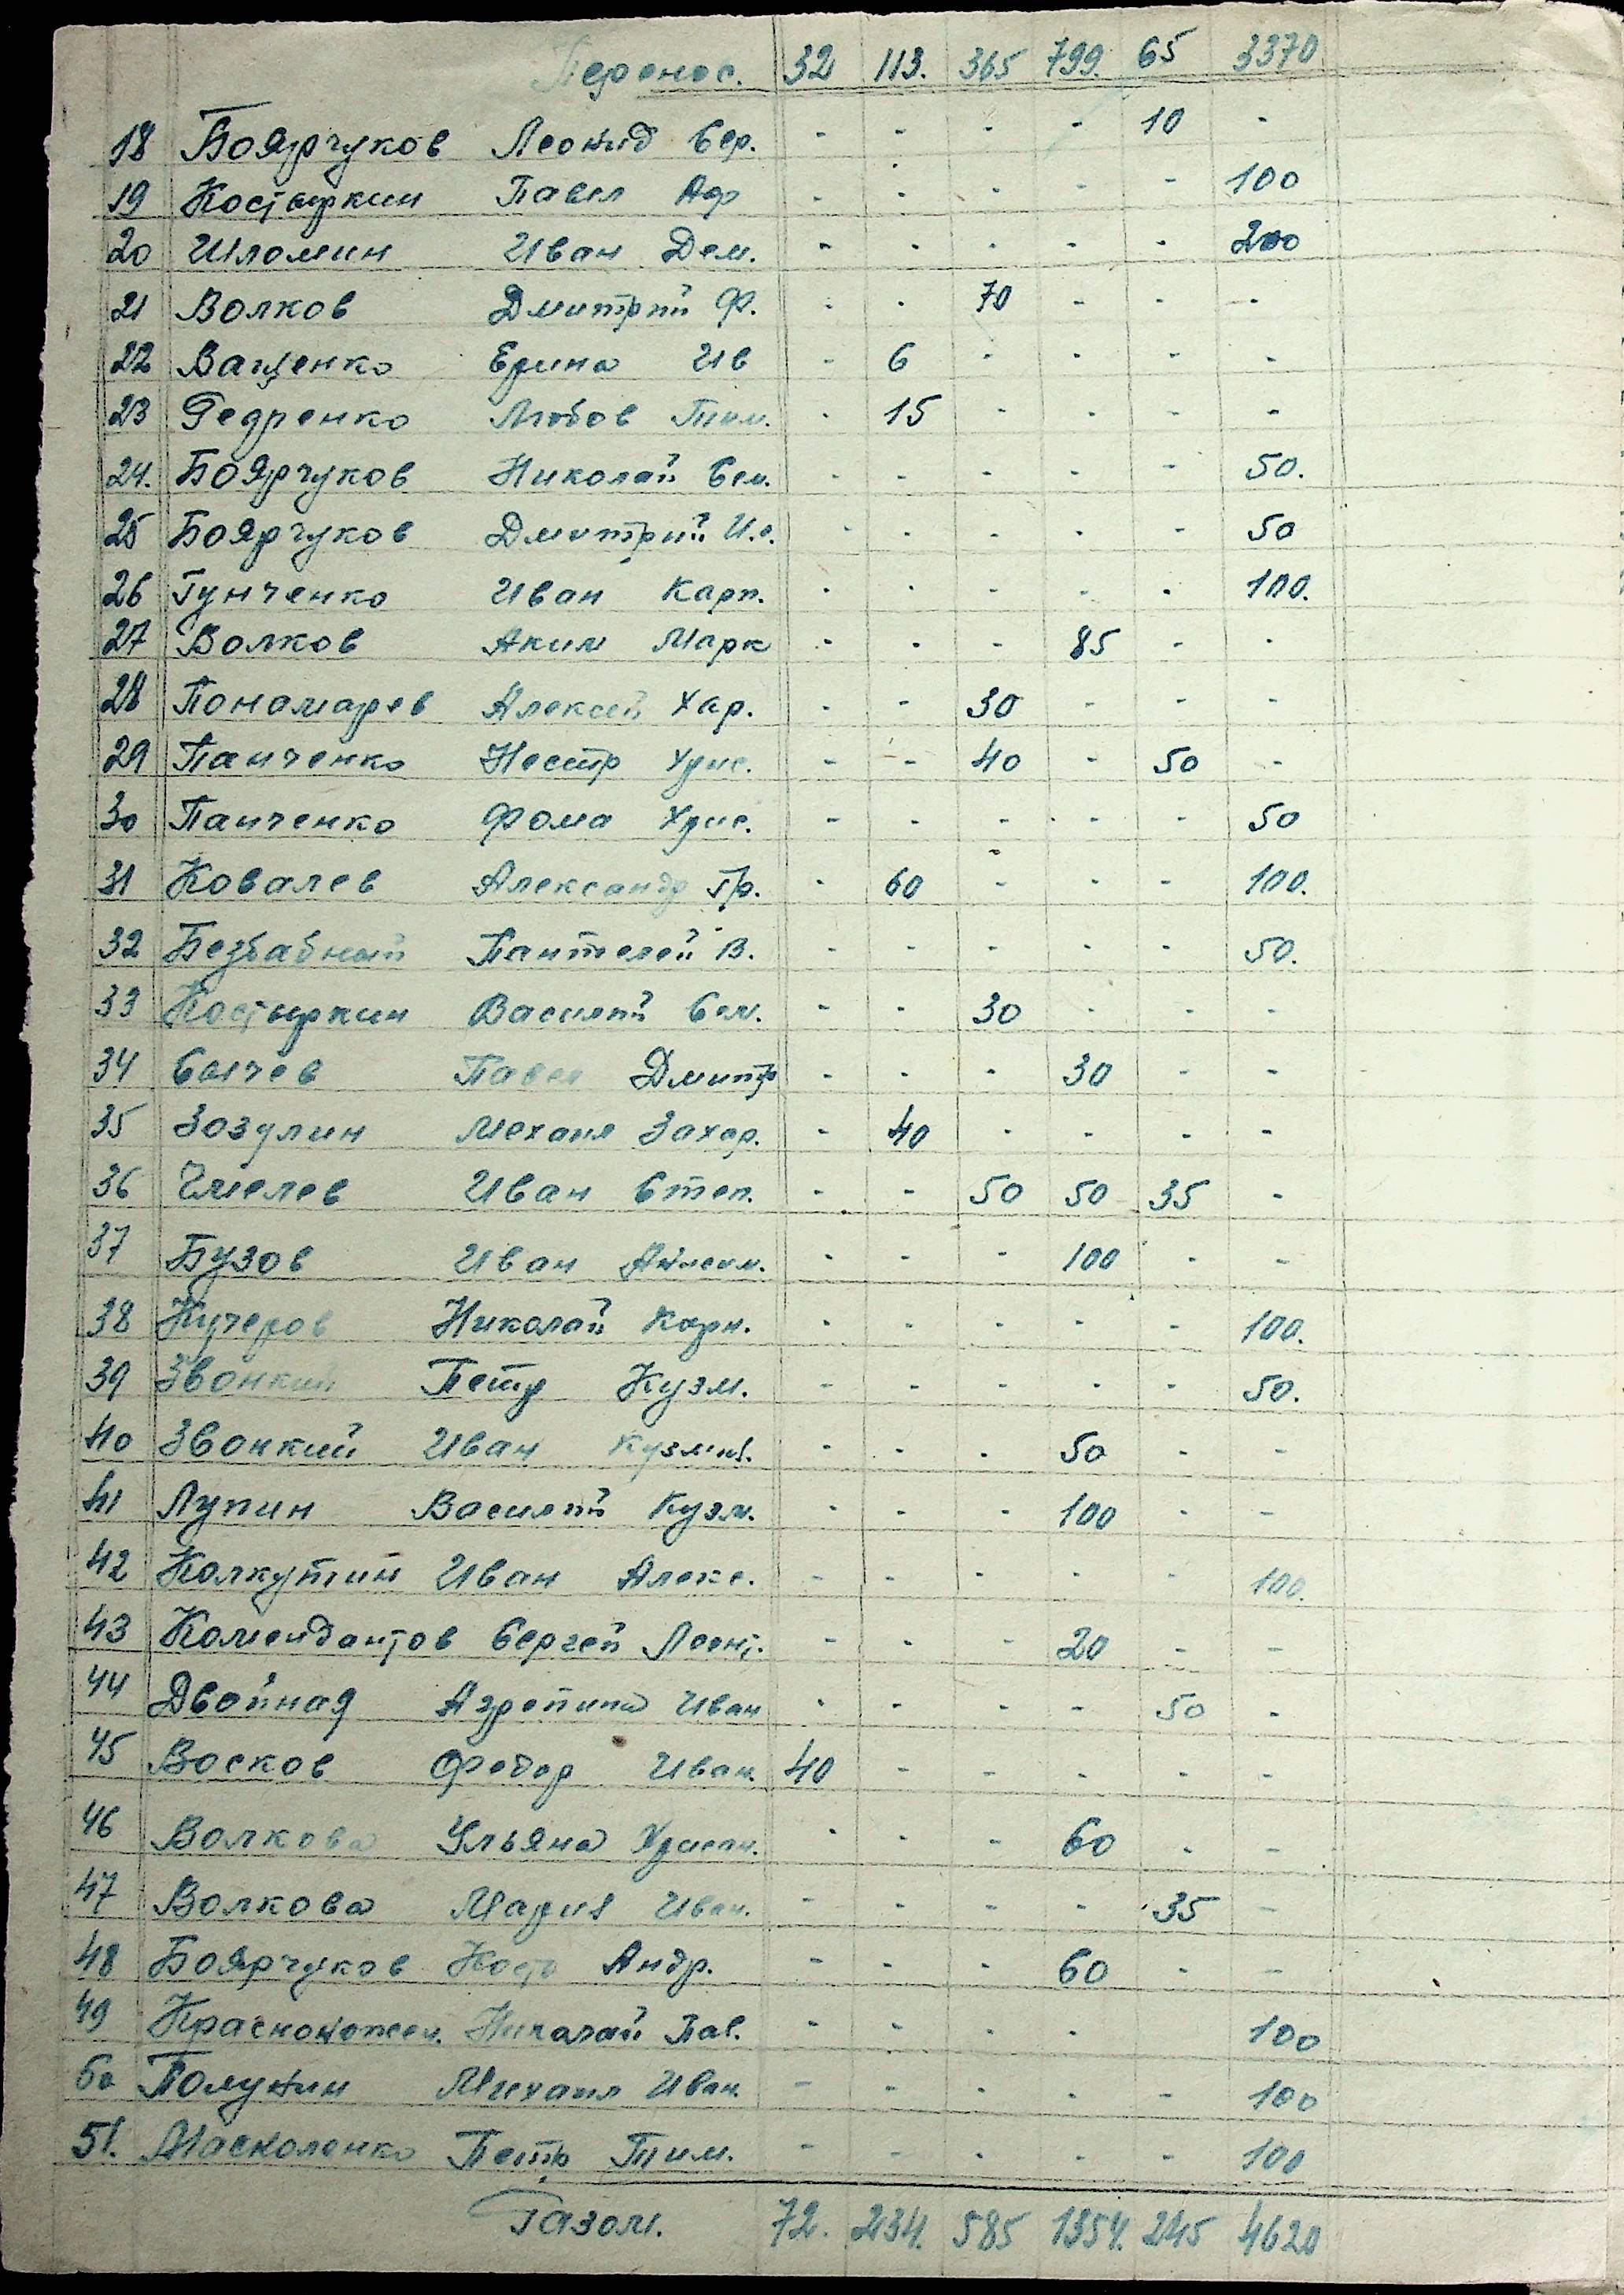 Перенос. 32 113. 365 799. 65 3370
18 Боярчуков Леонид Сер. - - - - 10 -
19 Костыркин Павел Аф - - - - - 100
20 Шломин Иван Дем. - - - - - 200
21 Волков Дмитрий Ф. - - 70 - - -
22 Ващенко Ерина Ив - 6 - - - -
23 Федренко Любов Тим. - 15 - - - -
24. Боярчуков Николай Сем. - - - - - 50.
25 Боярчуков Дмитрий - - - - - 50
26 Гунченко Иван Карп. - - - - - 100.
27 Волков Аким Марк - - - 85 - -
28 Пономарев Алексей Хар. - - 30 - - -
29 Панченко Нестр Хрис. - - 40 - 50 -
30 Панченко Фома Хрис. - - - - - 50
31 Ковалев Александр Гр. - 60 - - - 100.
32 Безбабный Пантелей В. - - - - - 50.
33 Костыркин Василий Сем. - - 30 - - -
34 Сычев Павел Дмитр - - - 30 - -
35 Зозулин Механл Захар. - 40 - - - -
36 Чмелев Иван Степ. - - 50 50 35 -
37 Бузов Иван - - - 100 - -
38 Кучеров Николай Корн. - - - - - 100.
39 Звонкий Петр Кузм. - - - - - 50.
40 Звонкий Иван Кузмич. - - - 50 - -
41 Лупин Василий Кузм. - - - 100 - -
42 Колкутин Иван Алекс. - - - - - 100.
43 Комендантов Сергей Леонт. - - - 20 - -
44 Двойная Агрепина Иван - - - - 50 -
45 Восков Федор Иван. 40 - - - - -
46 Волкова Ульяна Христ. - - - 60 - -
47 Волкова Мария Иван. - - - - 35 -
48 Боярчуков Кость Андр. - - - 60 - -
49 Красноножен. Николай Пав. - - - - 100
50 Полунин Михаил Иван - - - - - 100
51. Масколенко Петр Тим. - - - - - 100
Разом. 72. 234. 585 1354. 245 4620